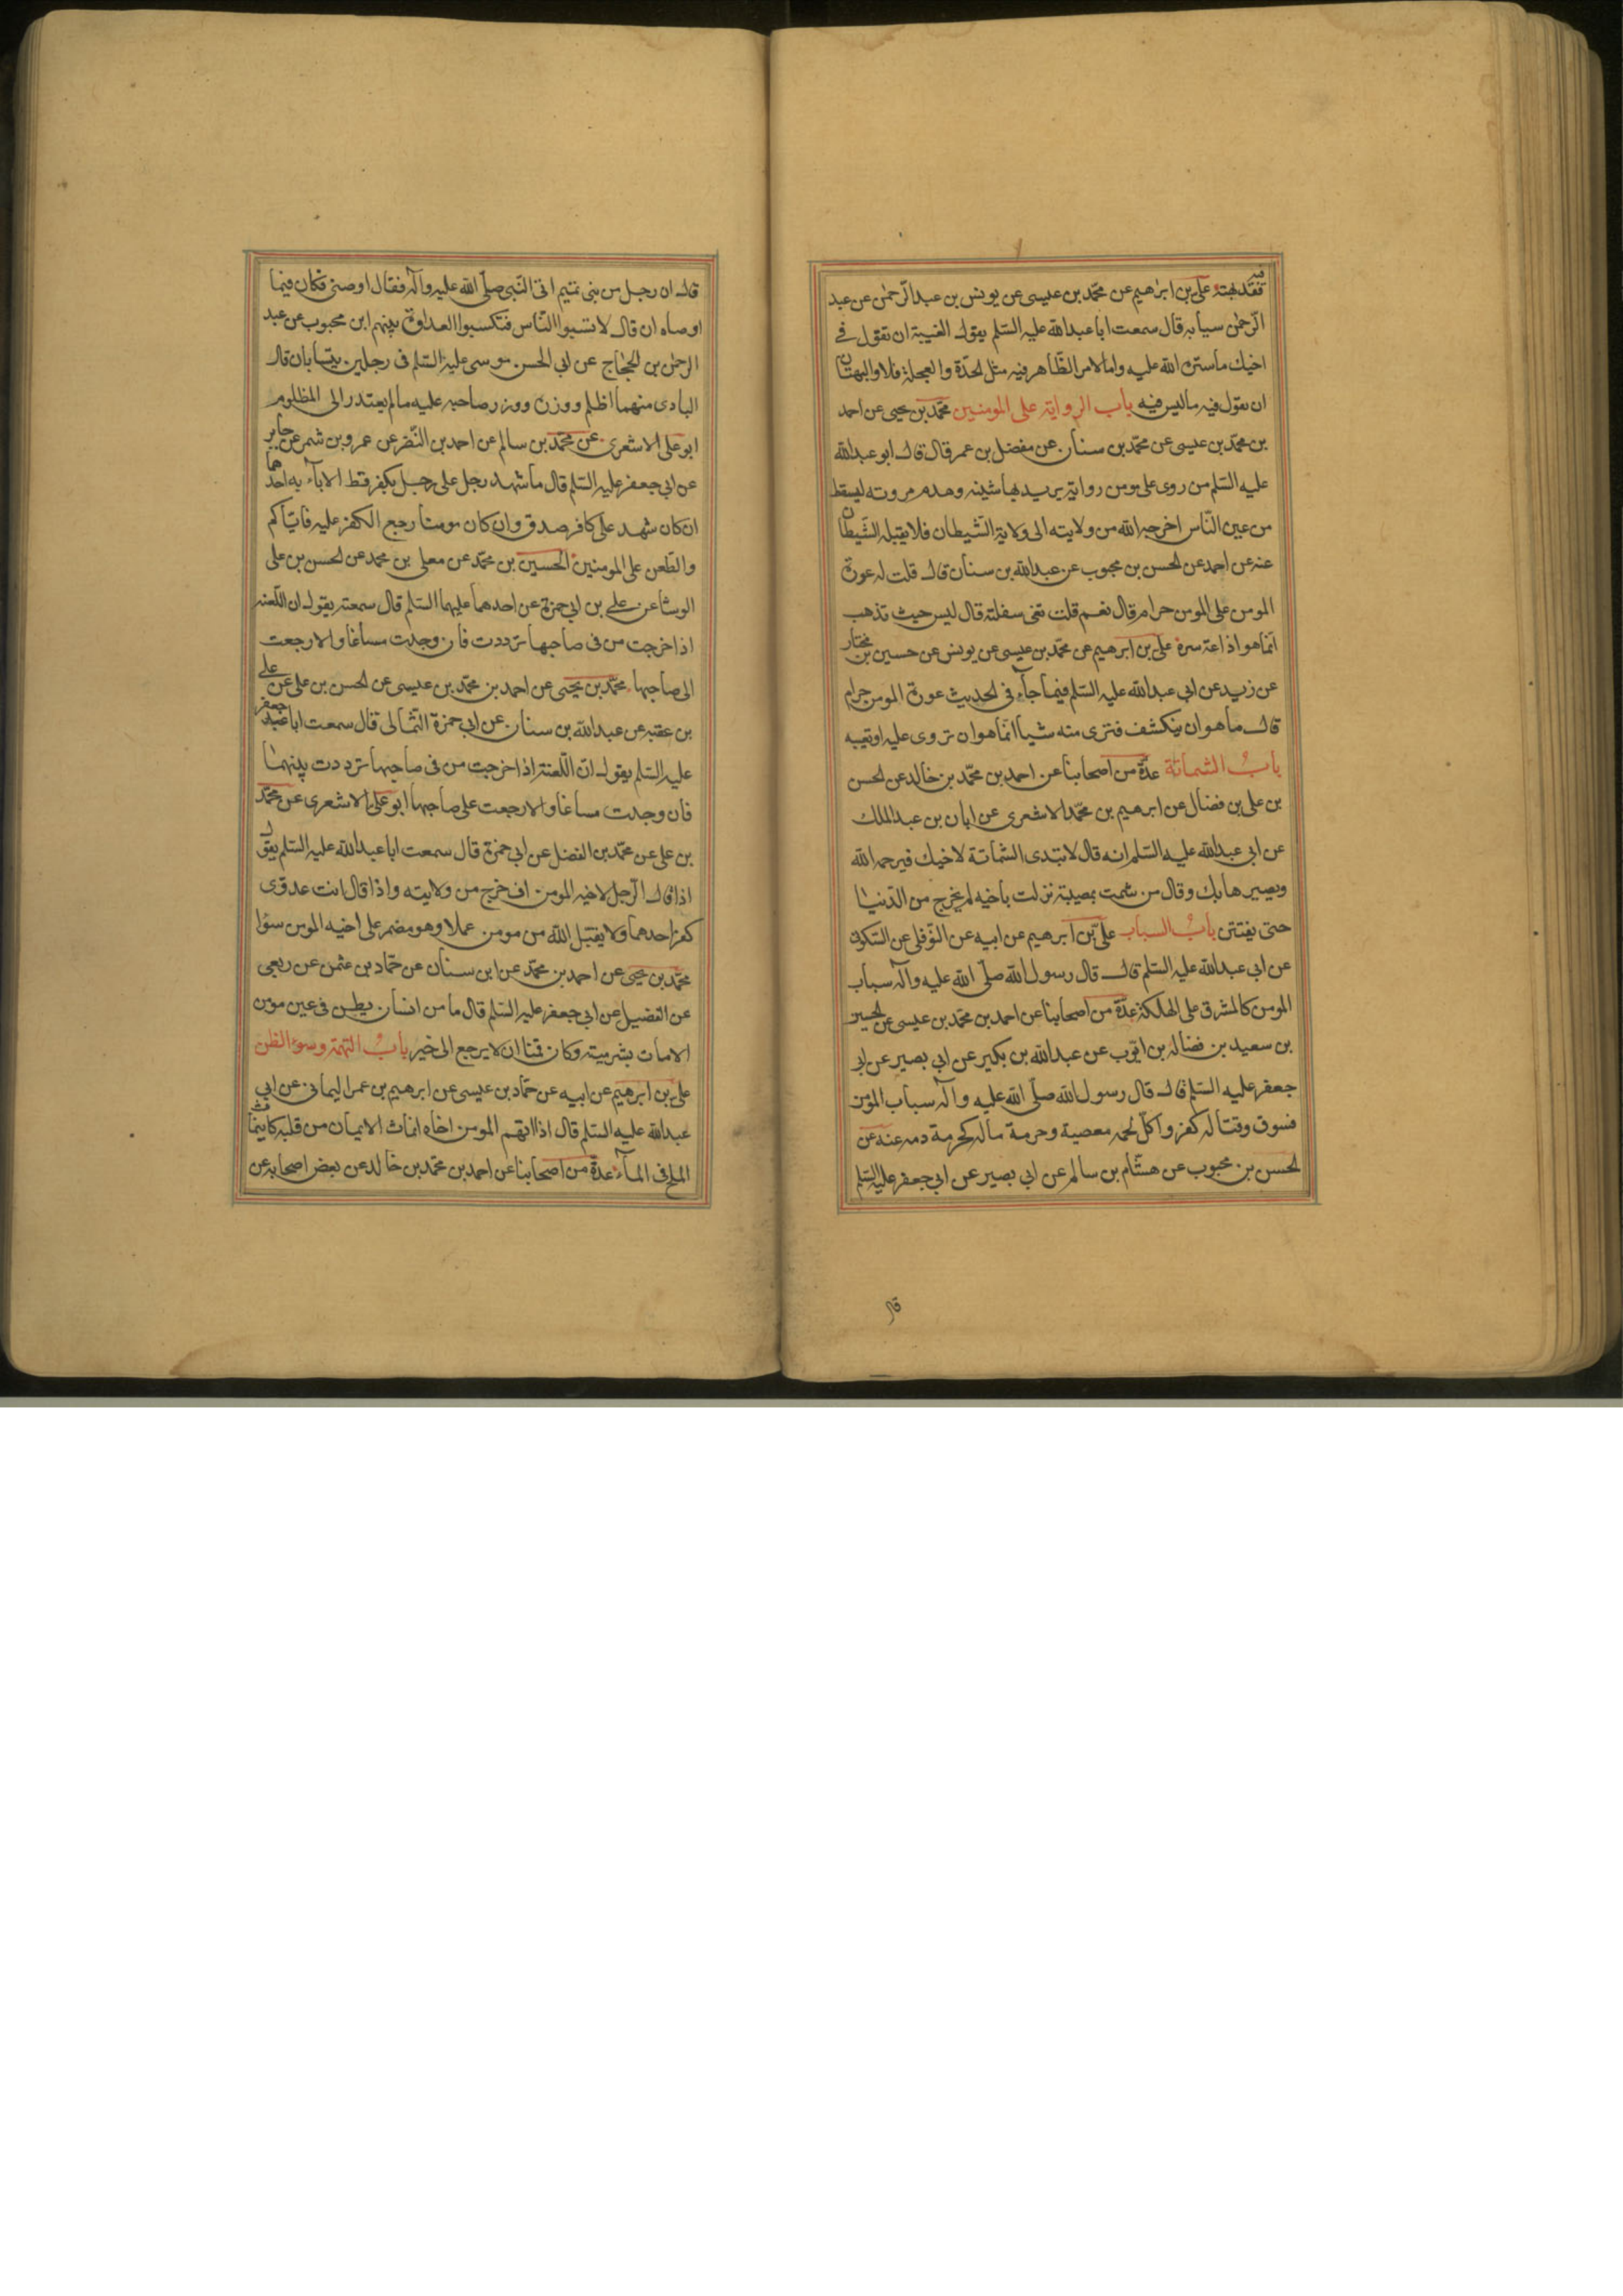 فيه
فقد بهته علي بن ابرهيم عن محمد بن عيسى عن يونس بن عبد الرحمن عن عبد
الرحمن سيابه قال سمعت ابا عبد الله عليه السلم يقول الغيبة ان تقول في
اخيك ما ستره الله عليه واما الامر الظاهر فيه مثل الحدة والعجلة فلا والبهتان
ان تقول فيه ما ليس فيه باب الرواية على المومنين محمد بن يحيى عن احمد
بن محمد بن عيسى عن محمد بن سنان عن مفضل بن عمر قال قال ابو عبد الله
عليه السلم من روى على مومن رواية يريد بها شينه وهدم مروته ليسقط
من عين الناس اخرجه الله من ولايته الى ولاية الشيطان فلا يقبله الشيطان
عنه عن احمد عن الحسن بن محبوب عن عبد الله بن سنان قال قلت له عورة
المومن على المومن حرام قال نعم قلت تعنى سفلته قال ليس حيث تذهب
انما هو اذاعة سره علي بن ابرهيم عن محمد بن عيسى عن يونس عن حسين بن مختار
عن زيد عن ابي عبد الله عليه السلم فيما جاء في الحديث عورة المومن حرام
قال ما هو ان ينكشف فترى منه شيا انما هو ان تروى عليه او تعيبه
باب الشماتة عدة من اصحابنا عن احمد بن محمد بن خالد عن الحسن
بن علي بن فضال عن ابرهيم بن محمد الاشعرى عن ابان بن عبد الملك
عن ابي عبد الله عليه السلم انه قال لا تبدى الشماتة لاخيك فيرحمه الله
ويصيرها بك وقال من شمت بمصيبة نزلت باخيه لم يخرج من الدنيا
حتى يفتتن باب السباب علي بن ابرهيم عن ابيه عن النوفلى عن السكونى
عن ابى عبد الله عليه السلم قال قال رسول الله صلى الله عليه وآله سباب
المومن كالمشرف على الهلكة عدة من اصحابنا عن احمد بن محمد بن عيسى عن الحسين
بن سعيد بن فضاله بن ايوب عن عبد الله بن بكير عن ابي بصير عن ابي
جعفر عليه السلم قال قال رسول الله صلى الله عليه وآله سباب المؤمن
فسوق وقتاله كفر واكل لحمه معصية وحرمة ماله كحرمة دمه عنه عن
الحسن بن محبوب عن هشام بن سالم عن ابي بصير عن ابي جعفر عليه السلم
قال
قال ان رجل من بنى تميم اتى النبي صلى الله عليه وآله فقال اوصنى فكان فيما
اوصاه ان قال لا تسبوا الناس فتكسبوا العداوة بينهم ابن محبوب عن عبد
الرحمن بن الحجاج عن ابي الحسن موسى عليه السلم فى رجلين يتسابان قال
البادى منهما اظلم ووزره ووزر صاحبه عليه ما لم يعتدر الى المظلوم
ابو على الاشعرى عن محمد بن سالم عن احمد بن النضر عن عمرو بن شمر عن جابر
عن ابي جعفر عليه السلم قال ما شهد رجل على رجل بكفر قط الا باء به احدهما
ان كان شهد على كافر صدق وان كان مومنا رجع الكفر عليه فاياكم
والطعن على المومنين الحسين بن محمد عن معلى بن محمد عن الحسن بن على
الوشا عن علي بن ابي حمزة عن احدهما عليهما السلم قال سمعته يقول ان اللعنه
اذا خرجت من فى صاحبها ترددت فان وجدت مساغا والا رجعت
الى صاحبها محمد بن يحيى عن احمد بن محمد بن عيسى عن الحسن بن على عن على
بن عقبه عن عبد الله بن سنان عن ابي حمزة الثمالى قال سمعت ابا عبد جعفر
عليه السلم يقول ان اللعنة اذا خرجت من فى صاحبها ترددت بينهما
فان وجدت مساغا والا رجعت على صاحبها ابو على الاشعرى عن محمد
بن على عن محمد بن الفضل عن ابي حمزة قال سمعت ابا عبد الله عليه السلم يقول
اذا قال الرجل لاخيه المومن اف خرج من ولايته واذا قال انت عدوى
كفر احدهما ولا يقبل الله من مومن عملا وهو مضمر على اخيه المومن سؤا
محمد بن يحيى عن احمد بن محمد عن ابن سنان عن حماد بن عثمن عن ربعى
عن الفضيل عن ابي جعفر عليه السلم قال ما من انسان يطعن فى عين مؤمن
الا مات بشر ميتة وكان قمنا ان لا يرجع الى خير باب التهمة وسوء الظن
علي بن ابرهيم عن ابيه عن حماد بن عيسى عن ابرهيم بن عمر اليمانى عن ابي
عبد الله عليه السلم قال اذا اتهم المومن اخاه انماث الايمان من قلبه كما ينماث
الملح فى الماء عدة من اصحابنا عن احمد بن محمد بن خالد عن بعض اصحابه عن